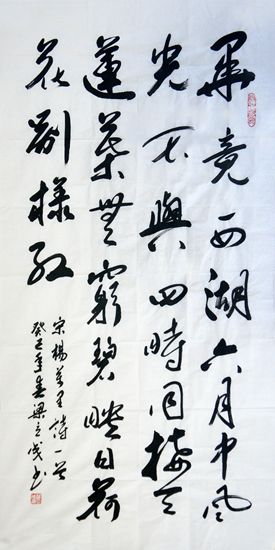 畢竟西湖六月中風
光不與四時同接天
蓮葉無窮碧映日荷
花別樣紅
宋楊萬里詩一首
癸巳年春梁书